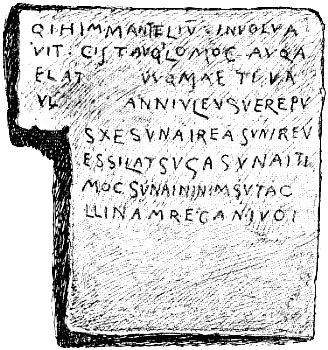 QIHIMMANTELIV · INVOLVA
VIT · CISTAVQLOMOC · AVQA
ELAT VVQMAE TIVA
VL ANNIVLEVSVEREPV
SXESVNAIREASVNIREV
ESSILATSVGASVNAITI
MOCSVNAININIMSVTAC
LLINAMREGANIVOI